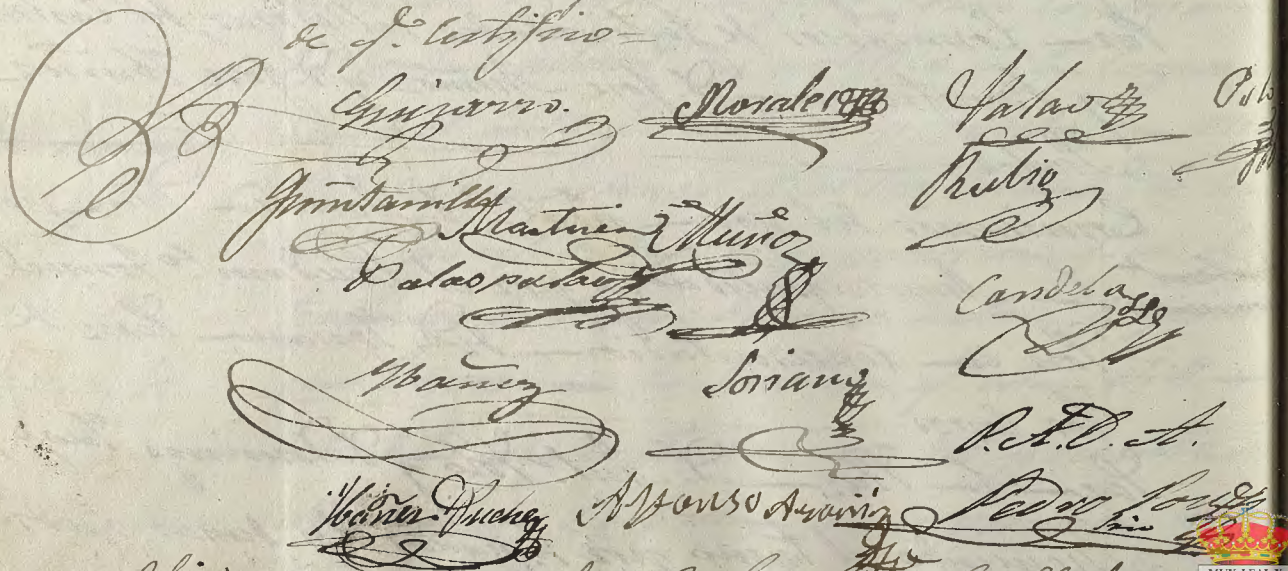 de q.e Certifico=
Guijarro. Morales Palao
Quintanilla Martinez Muñoz Rubio
Palao palao Candela
Ybañez Soriano
P. A. D. A.
Ybañez Puche Alfonso Pedro
MUY LEAL Y